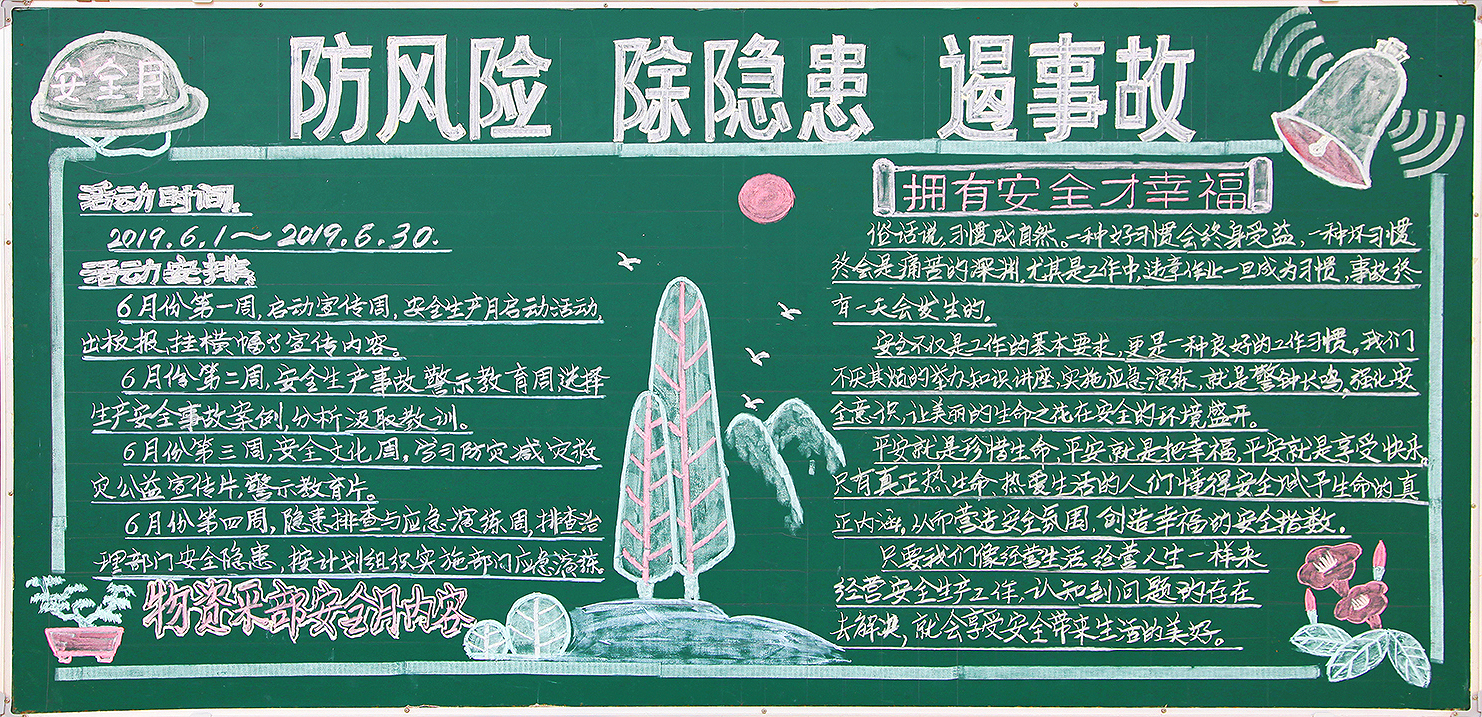 安全月
防风险 除隐患 遏事故
活动时间:
2019.6.1～2019.6.30.
活动安排:
6月份第一周,启动宣传周,安全生产月启动活动,
出板报,挂横幅等宣传内容。
6月份第二周,安全生产事故警示教育周选择
生产安全事故案例,分析汲取教训。
6月份第三周,安全文化周,学习防灾减灾救
灾公益宣传片,警示教育片。
6月份第四周,隐患排查与应急演练周,排查治
理部门安全隐患,按计划组织实施部门应急演练
物资采部安全月内容
拥有安全才幸福
俗话说,习惯成自然。一种好习惯会终身受益,一种坏习惯
终会是痛苦的深渊,尤其是工作中,违章作业一旦成为习惯,事故终
有一天会发生的.
安全不仅是工作的基本要求,更是一种良好的工作习惯。我们
不厌其烦的举办知识讲座,实施应急演练,就是警钟长鸣,强化安
全意识,让美丽的生命之花在安全的环境盛开。
平安就是珍惜生命,平安就是把幸福,平安就是享受快乐,
只有真正热生命、热爱生活的人们懂得安全赋予生命的真
正内涵,从而营造安全氛围,创造幸福的安全指数.
只要我们像经营生活经营人生一样来
经营安全生产工作,认知到问题的存在
去解决,就会享受安全带来生活的美好。